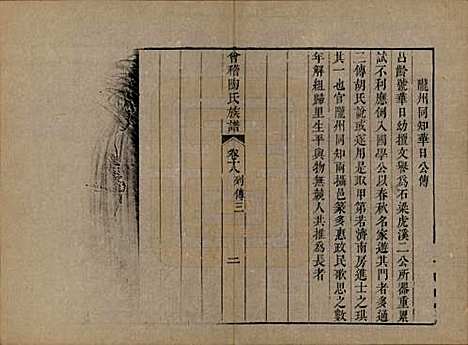 隴州同知華日公傳
占齡號華日幼擅文譽爲石梁虎溪二公所器重累
試不利應例入國學公以春秋名家遊其門者多通
二傳胡氏說或遂用是取甲第若濟南房進士之琪
其一也官隴州同知兩攝邑篆多惠政民歌思之數
年解組歸里生平與物無競人共推爲長者
會稽陶氏族譜 卷十八 列傳三 二